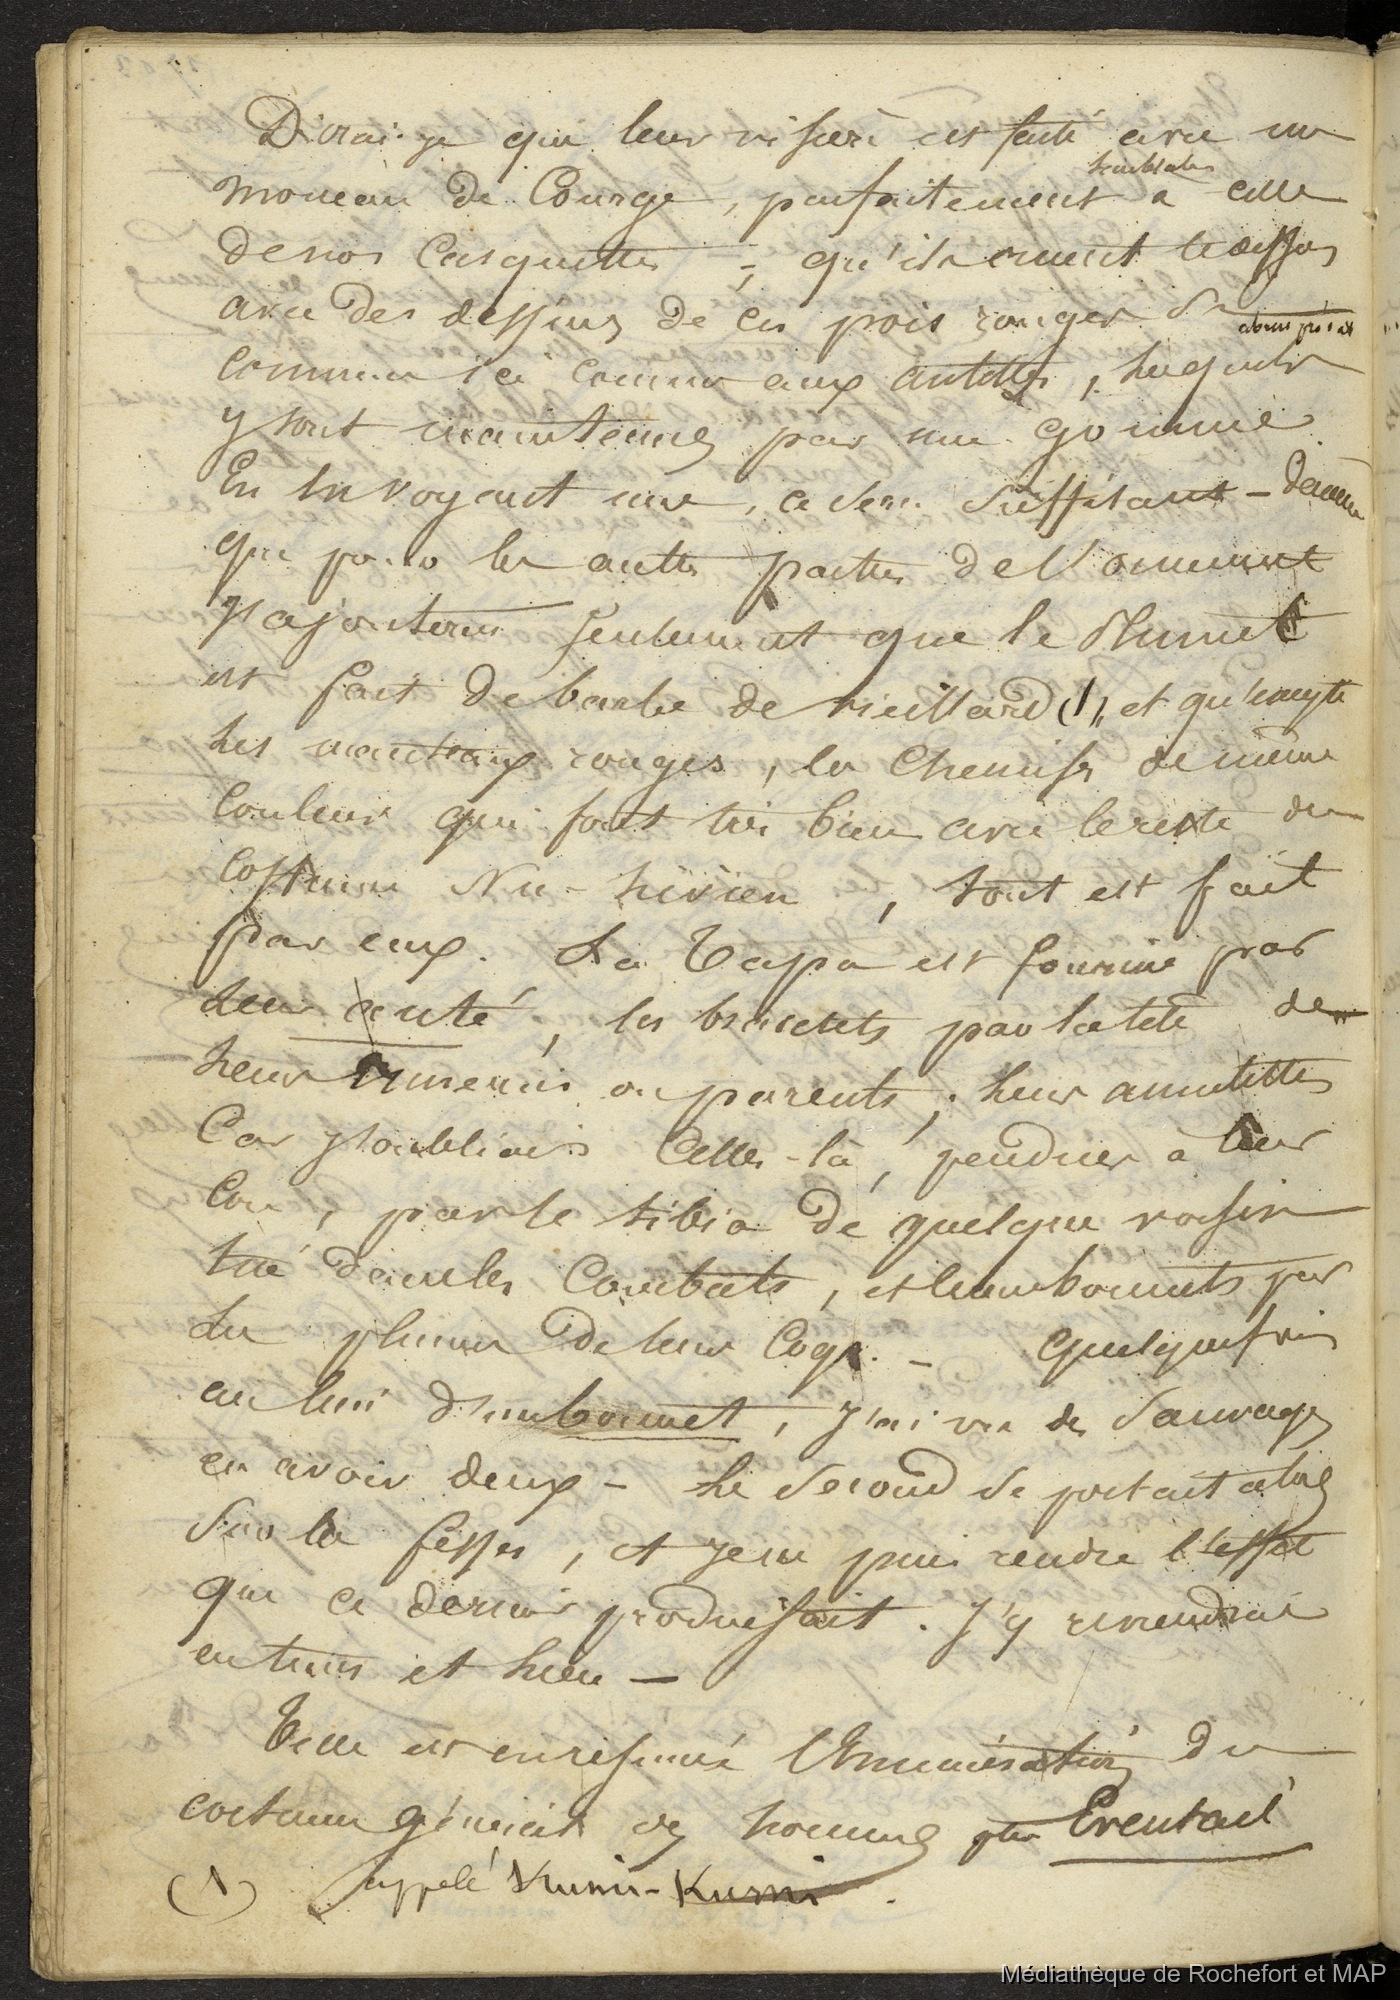 Dirai-je que leur visière est faite avec un
morceau de Courge, parfaitement semblable à celle
de nos Casquettes ; qu'ils ornent le dessus
avec des dessins de ces pois rouges &
communs ici comme aux antilles, lesquels
y sont maintenus par une gomme.
En en voyant une, ce sera suffisant –
que pour les autres parties de l'ornement
J'ajouterai seulement que le Plumet
est fait de barbe de vieillard (1), et qu'excepté
les manteaux rouges, la Chemise de même
Couleur qui font très bien avec le reste du
Costume Nu-hivien, tout est fait
par eux. La Tapa est fournie par
leur auté, les bracelets par la tête de
leurs ennemis ou parents ; leur amulettes
Car j'oubliais Celles-là, pendues à leur
Cou, par le tibia de quelque voisin
tué dans les Combats, et leurs bonnets par
les plumes de leur Coqs. – Quelquefois
au lieu d'un bonnet, J'ai vu des Sauvages
en avoir deux – Le Second se portait alors
Sur les fesses, et je ne puis rendre l'effet
que ce dernier produisait. J'y reviendrai
en temps et lieu –
Telle est en résumé l'Enumération du
costume général des hommes Eventail
(1) appelé Kumi-Kumi.
Médiathèque de Rochefort et MAP